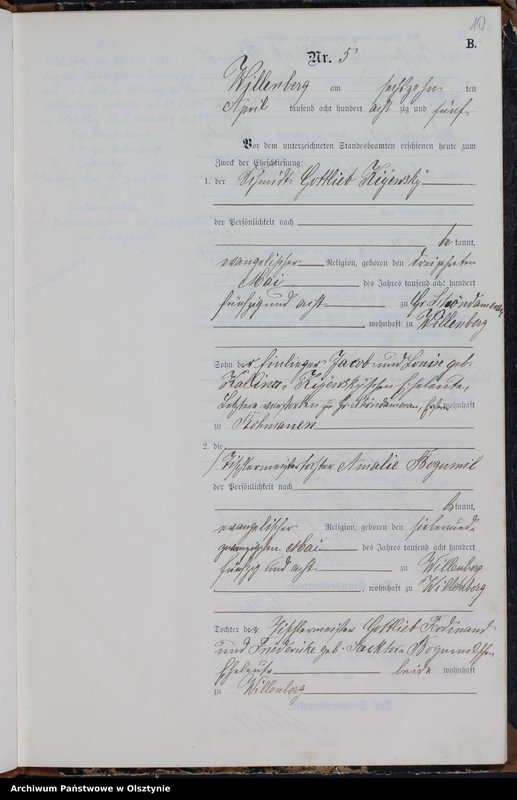 10
B.
Nr. 5
Willenberg am sechszehn ten
April tausend acht hundert acht zig und fünf
Vor dem unterzeichneten Standesbeamten erschienen heute zum
Zweck der Eheschließung:
1. der Schmidt Gottlieb
der Persönlichkeit nach
be kannt,
evangelischer Religion, geboren den dreizehnten
Mai des Jahres tausend acht hundert
fünfzig und acht zu Gr.
, wohnhaft zu Willenberg
Sohn der Einlieger Jacob und Louise geb.
Kallina Eheleute,
Letztere verstorben zu Gr. wohnhaft
zu
2. die
Tischlermeistertochter Amalie Bogumil
der Persönlichkeit nach
be kannt,
evangelischer Religion, geboren den sieben und
zwanzigsten Mai des Jahres tausend acht hundert
fünfzig und acht zu Willenberg
, wohnhaft zu Willenberg
Tochter der Tischlermeister Gottlieb Ferdinand
und Friederike geb. Bogumilschen
Eheleute beide wohnhaft
zu Willenberg
Archiwum Państwowe w Olsztynie